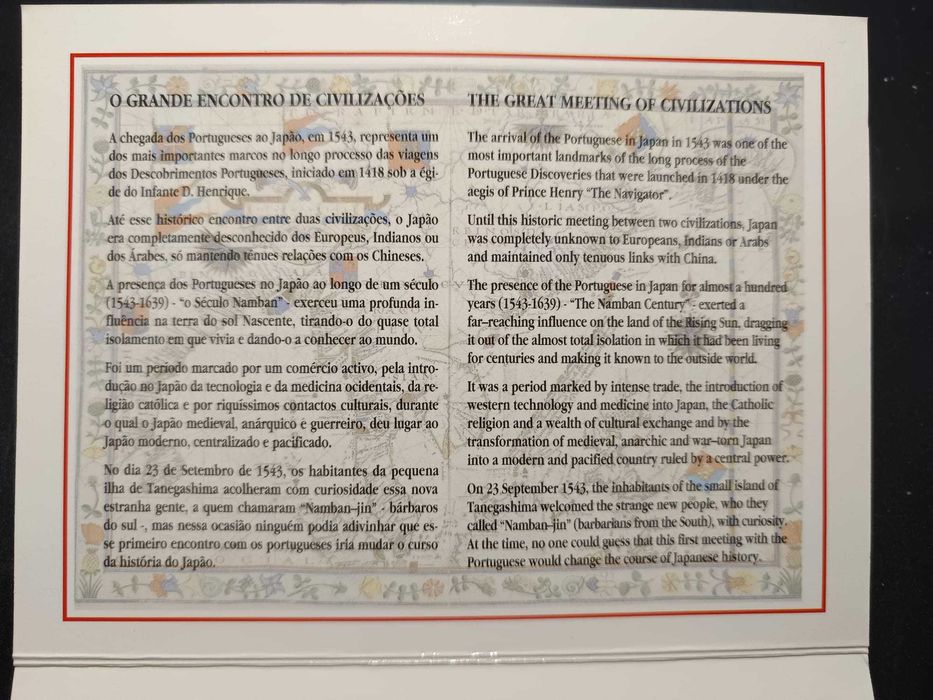 O GRANDE ENCONTRO DE CIVILIZAÇÕES
A chegada dos Portugueses ao Japão, em 1543, representa um
dos mais importantes marcos no longo processo das viagens
dos Descobrimentos Portugueses, iniciado em 1418 sob a égi-
de do Infante D. Henrique.
Até esse histórico encontro entre duas civilizações, o Japão
era completamente desconhecido dos Europeus, Indianos ou
dos Árabes, só mantendo ténues relações com os Chineses.
A presença dos Portugueses no Japão ao longo de um século
(1543-1639) - "o Século Namban" - exerceu uma profunda in-
fluência na terra do sol Nascente, tirando-o do quase total
isolamento em que vivia e dando-o a conhecer ao mundo.
Foi um período marcado por um comércio activo, pela intro-
dução no Japão da tecnologia e da medicina ocidentais, da re-
ligião católica e por riquíssimos contactos culturais, durante
o qual o Japão medieval, anárquico e guerreiro, deu lugar ao
Japão moderno, centralizado e pacificado.
No dia 23 de Setembro de 1543, os habitantes da pequena
ilha de Tanegashima acolheram com curiosidade essa nova
estranha gente, a quem chamaram "Namban-jin" - bárbaros
do sul -, mas nessa ocasião ninguém podia adivinhar que es-
se primeiro encontro com os portugueses iria mudar o curso
da história do Japão.
THE GREAT MEETING OF CIVILIZATIONS
The arrival of the Portuguese in Japan in 1543 was one of the
most important landmarks of the long process of the
Portuguese Discoveries that were launched in 1418 under the
aegis of Prince Henry "The Navigator".
Until this historic meeting between two civilizations, Japan
was completely unknown to Europeans, Indians or Arabs
and maintained only tenuous links with China.
The presence of the Portuguese in Japan for almost a hundred
years (1543-1639) - "The Namban Century" - exerted a
far-reaching influence on the land of the Rising Sun, dragging
it out of the almost total isolation in which it had been living
for centuries and making it known to the outside world.
It was a period marked by intense trade, the introduction of
western technology and medicine into Japan, the Catholic
religion and a wealth of cultural exchange and by the
transformation of medieval, anarchic and war-torn Japan
into a modern and pacified country ruled by a central power.
On 23 September 1543, the inhabitants of the small island of
Tanegashima welcomed the strange new people, who they
called "Namban-jin" (barbarians from the South), with curiosity.
At the time, no one could guess that this first meeting with the
Portuguese would change the course of Japanese history.